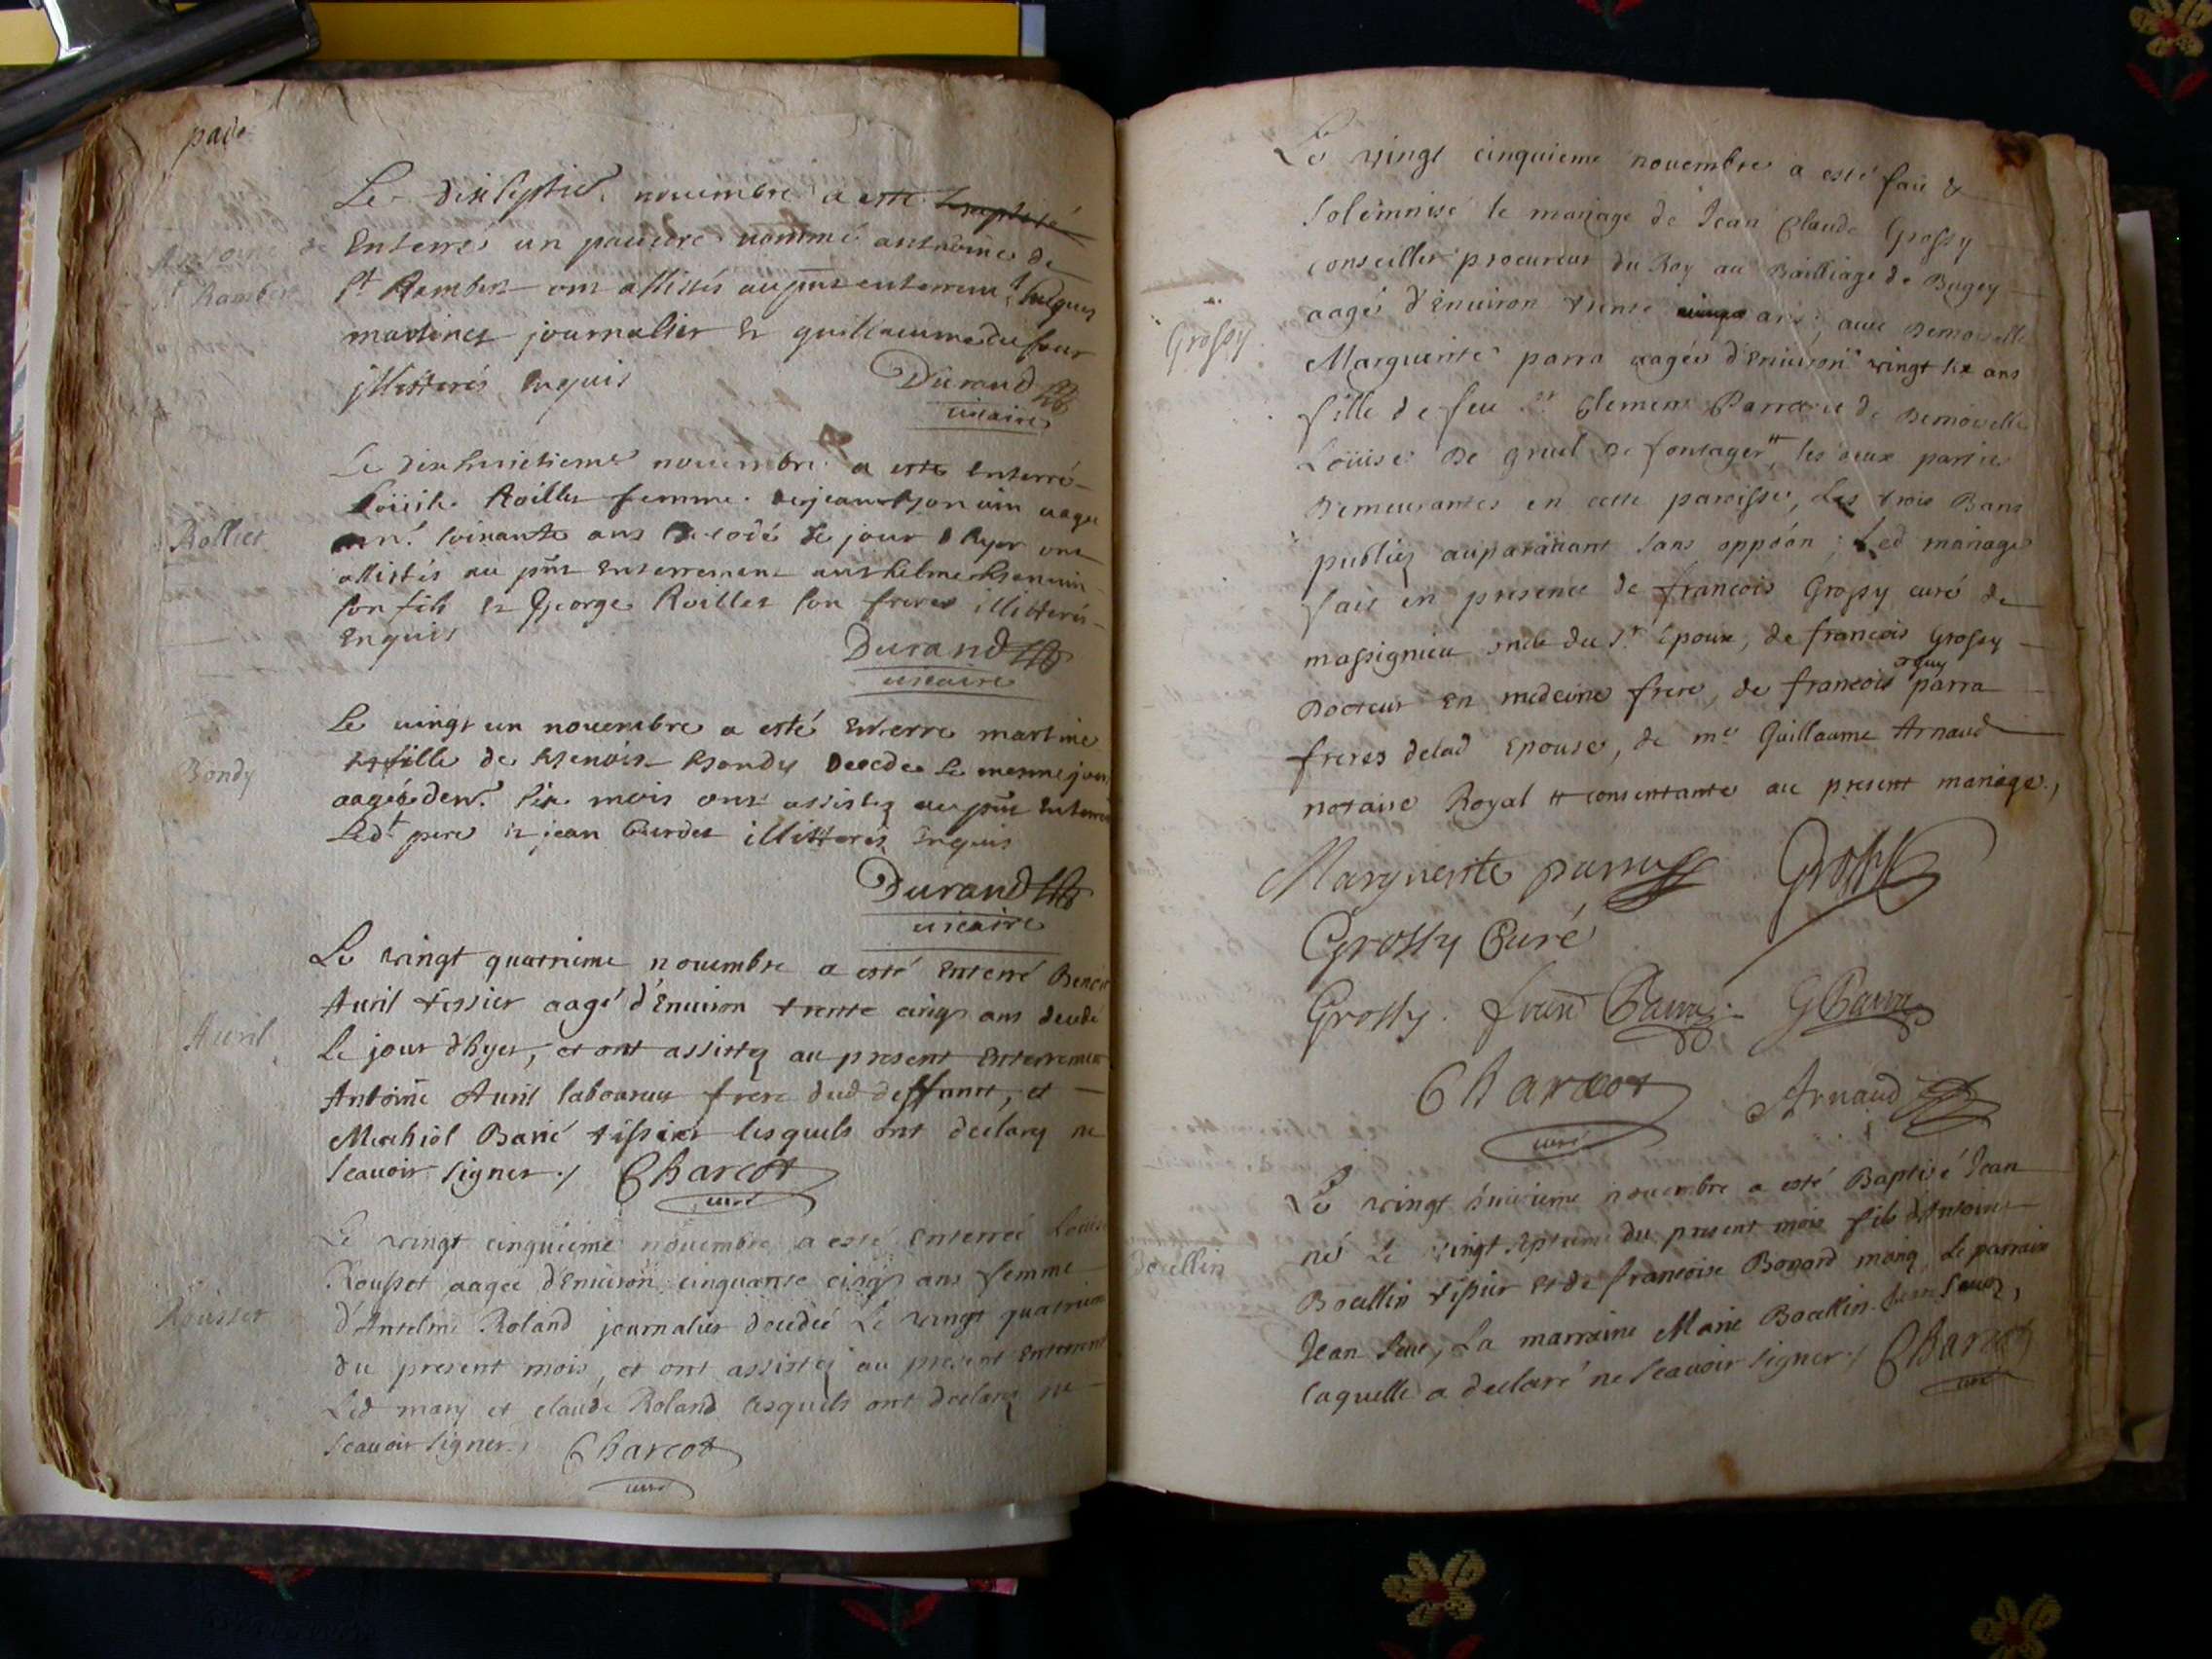 page
Le dixseptie. nouembre a este baptisé
Antoine de
Enterré un pauure nommé anthoine de
St Rambert
St Rambert ont assistés au pnt enterremt Jacques
martinet journalier et guillaume dufour
illitterés Enquis Durand
vicaire
Le dixhuictieme nouembre a este enterré
Louise Roillet femme de jean Bonuin aagee
Rollet
soixante ans decedé le jour d hyer ont
assistés au pnt Enterrement anthelme Bonuin
son fils et George Roillet son frere illitterés
Enquis
Durand
vicaire
Le vingt un nouembre a esté enterre martine
fille de Benoit Bondy decedee le mesme jour
Bondy
aagée denv. six mois ont assistez au pnt enterre
Ledt pere et jean Curdet illitterés Enquis
Durand
vicaire
Le vingt quatrieme nouembre a esté enterré Benoit
Auril tissier aagé d'Enuiron trente cinq ans decedé
Auril
le jour d'hyer, et ont assistez au present enterrement
Antoine Auril laboureur frere dud deffunct, et
Melchiol Barié tissier lesquels ont declarez ne
scauoir signer ./ Charcot
curé
Le vingt cinquieme nouembre a esté enterrée Louise
Rousset aagee d'Enuiron cinquante cinq ans femme
Rousset
d'Antelme Roland journalier decedée Le vingt quatrieme
du present mois, et ont assistez au present enterrement
Led mary et claude Roland lesquels ont declarez ne
scauoir signer ./ Charcot
curé
Le vingt cinquieme nouembre a esté fait &
solemnisé le mariage de Jean Claude Grossy
conseiller procureur du Roy au Bailliage de Bugey
aagé d'Enuiron trente ans, auec Demoiselle
Grossy
Marguerite parra aagée d'Enuiron vingt six ans
fille de feu Sr Clement Parra et de Demoiselle
Loüise De gruel De fontager tt les deux parties
Demeurantes en cette paroisse, Les trois Bans
publiez auparauant sans oppôon ; Led mariage
fait en presence de francois Grossy curé de
massignieu oncle du Sr. Epoux, de francois Grossy
Docteur en medecine frere, de francois et guy parra
freres delad Epouse, de me Guillaume Arnaud
notaire Royal tt consentants au present mariage,
Marguerite parra Grossy
Grossy Curé
Grossy. Parra G Parra
Charcot Arnaud
curé
Le vingt huitieme nouembre a esté Baptisé Jean
né Le vingt septieme du present mois fils d'Antoine
Boellin
Boellin tissier et de francoise Bonard mariez Le parrain
Jean, La marraine Marie Boellin,
laquelle a declaré ne scauoir signer ./ Charcot
curé